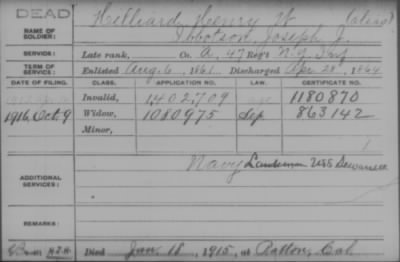 DEAD
NAME OF SOLDIER: Hilliard, Henry W (alias)
Ibbotson, Joseph J.
SERVICE: Late rank, Co. A, 47 Reg't N.Y. Inf
TERM OF SERVICE: Enlisted Aug. 6, 1861 Discharged Apr. 28, 1864
DATE OF FILING. CLASS. APPLICATION NO. LAW. CERTIFICATE NO.
Invalid, 1402709 1180870
1916 Oct 9 Widow, 1080975 Sep 863142
Minor,
ADDITIONAL SERVICES: Navy Landsman USS Suwanee
REMARKS:
Died Jan. 18, 1915, at Cal.